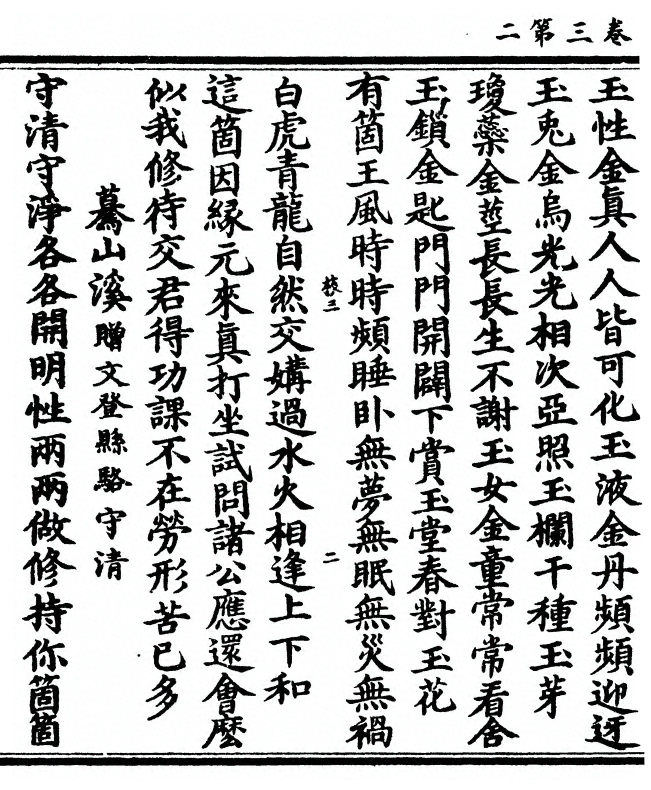 卷三第二
玉性金真人人皆可化玉液金丹頻頻迎迓
玉兎金烏光光相次亞照玉欄干種玉芽
瓊蘂金莖長長生不謝玉女金童常常看舍
玉鎖金匙門門開闢下賞玉堂春對玉花
有箇王風時時頻睡卧無夢無眠無災無禍
白虎青龍自然交媾過水火相逢上下和
這箇因緣元來真打坐試問諸公應還會麼
似我修待交君得功課不在勞形苦已多
驀山溪贈文登縣駱守清
守清守淨各各開明性兩兩做修持你箇箇
二